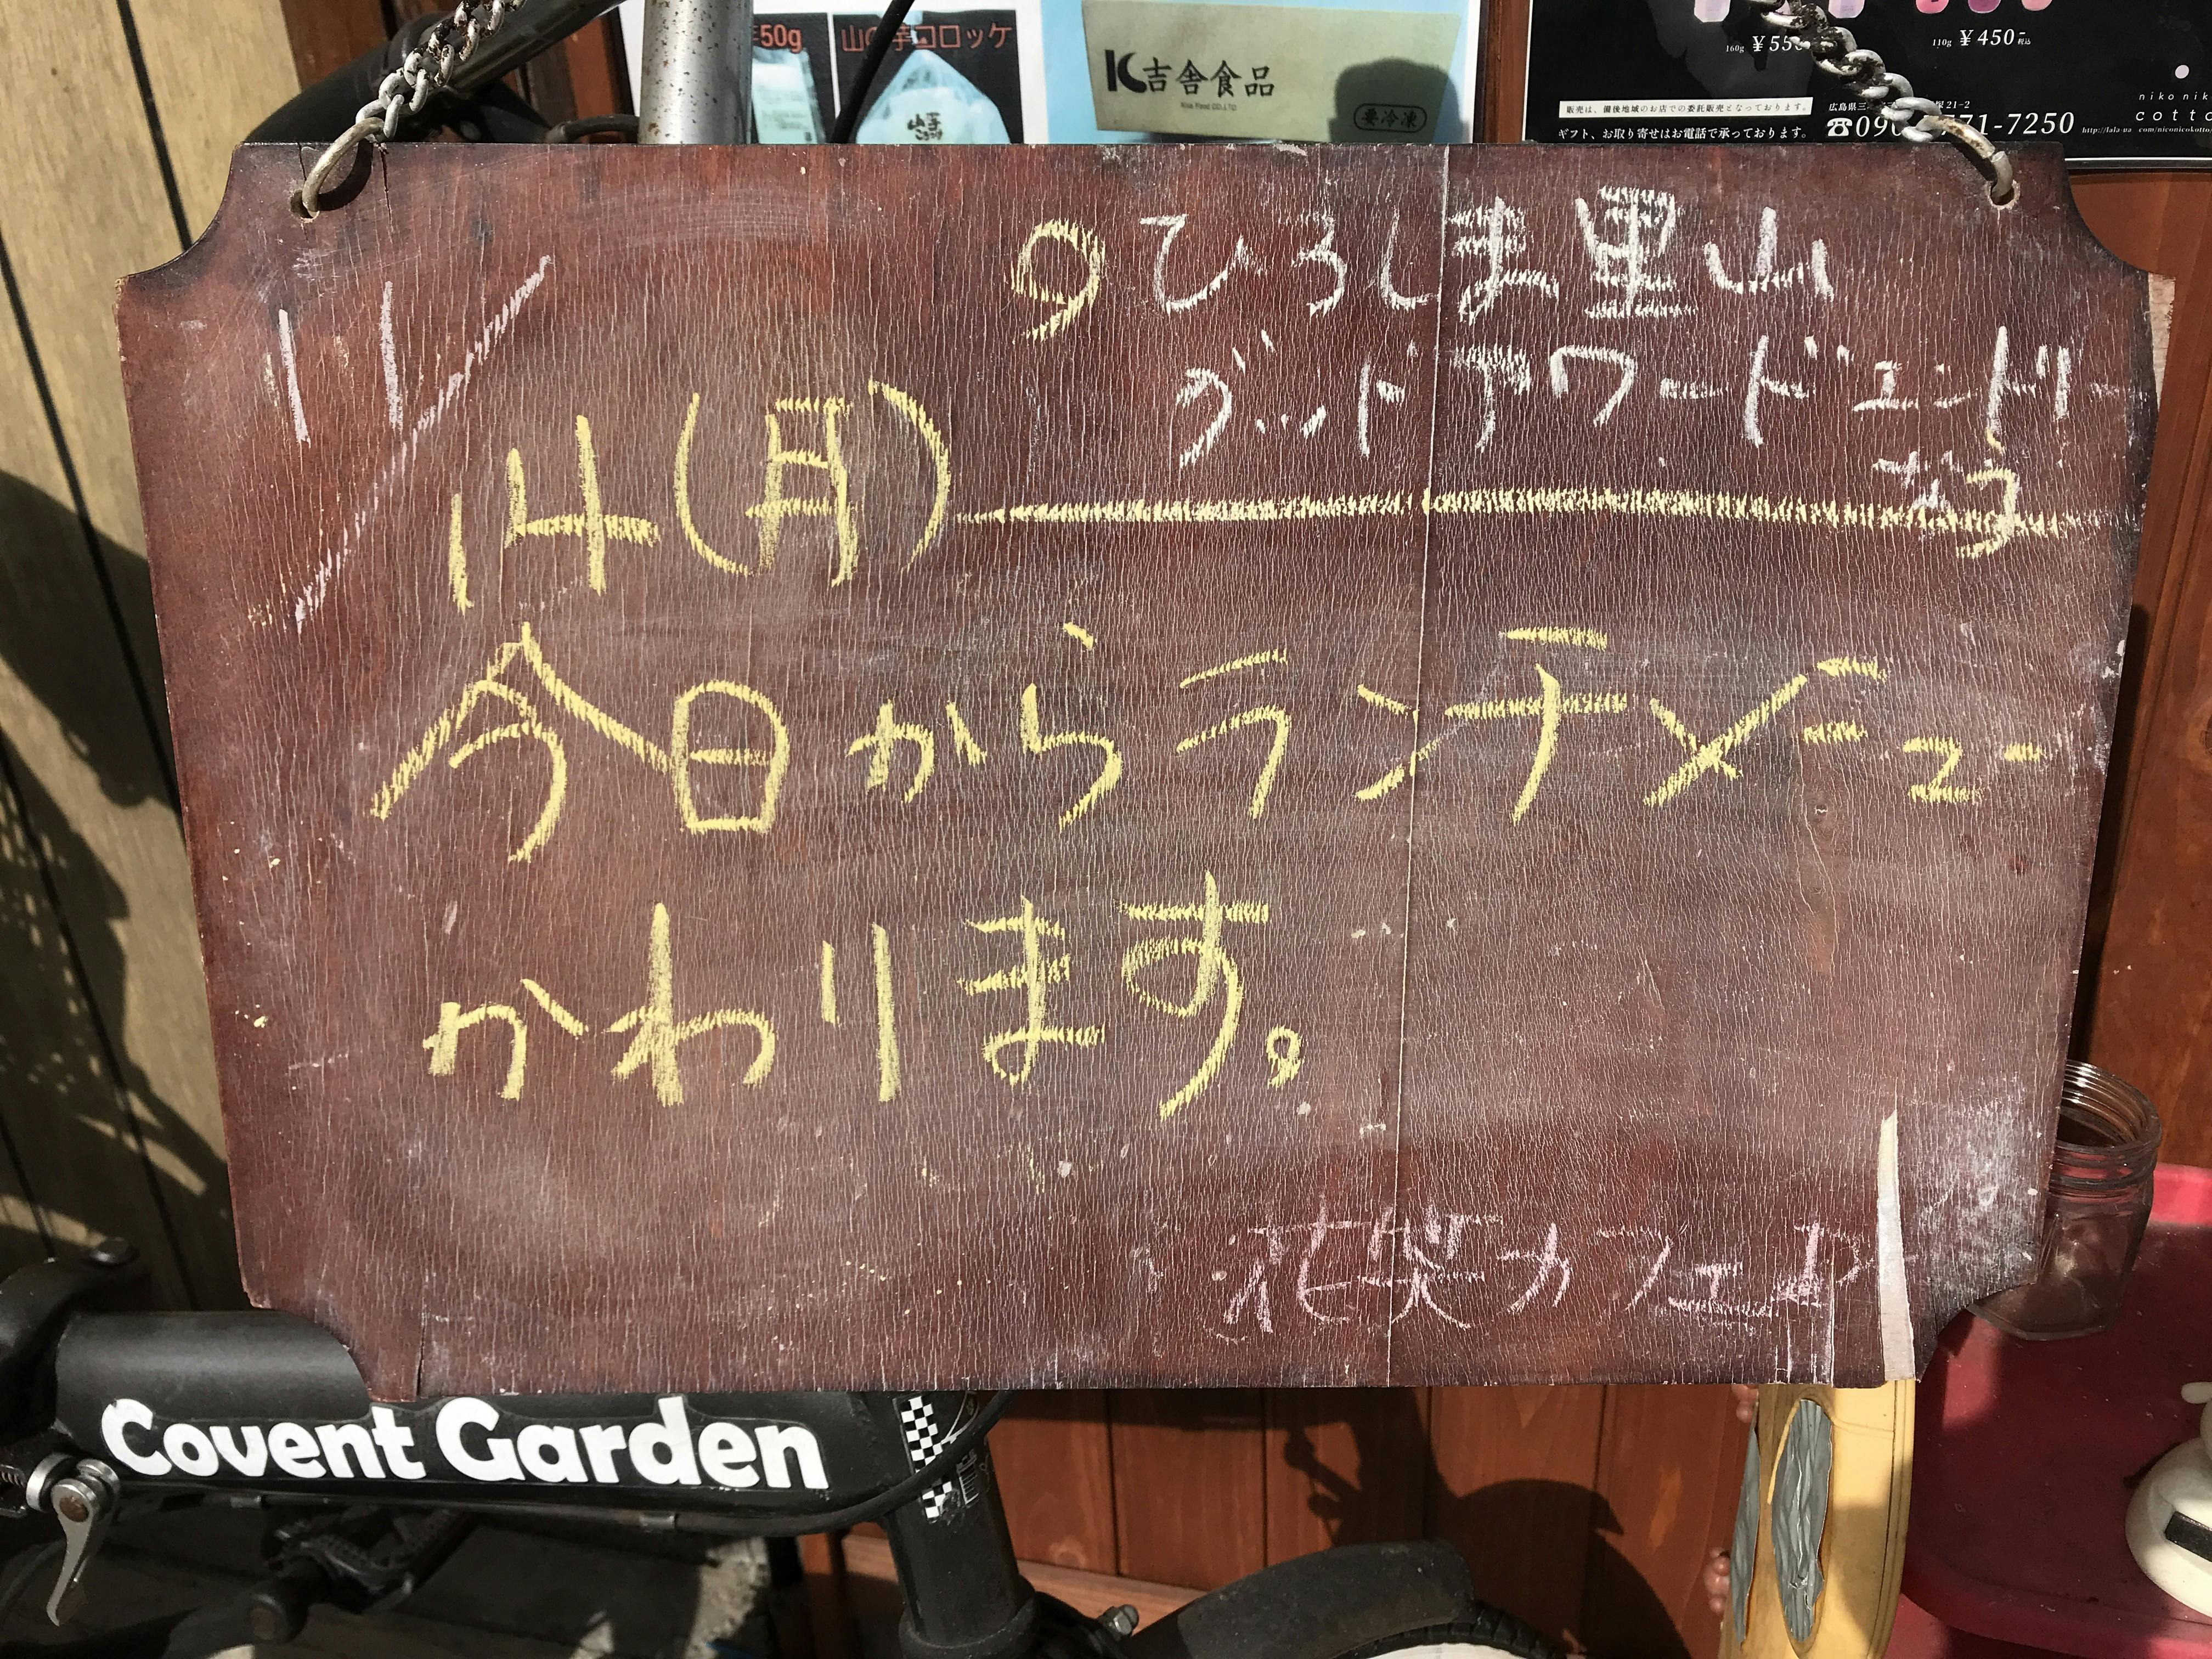 50g
山の芋コロッケ
K吉舎食品
Kisa Food CO.,LTD
要冷凍
160g ¥550
110g ¥450- 税込
販売は、備後地域のお店での委託販売となっております。
ギフト、お取り寄せはお電話で承っております。
広島県三
21-2
☎090 771-7250
niko nik
cotto
9 ひろしま里山
グットアワードエントリー
11/14(月)
今日からランチメニュー
かわります。
花笑カフェ
Covent Garden